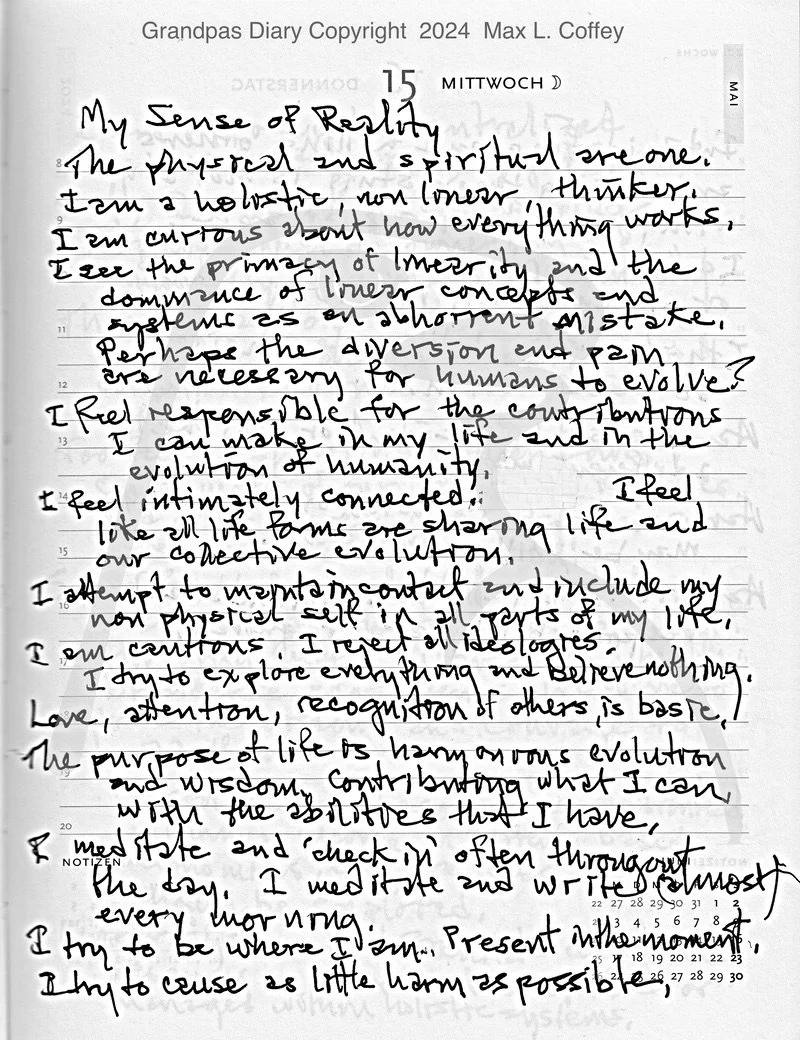 Grandpas Diary Copyright 2024 Max L. Coffey
15 MITTWOCH
MAI
My Sense of Reality
The physical and spiritual are one.
I am a holistic, non linear, thinker.
I am curious about how everything works.
I see the primacy of linearity and the
dominance of linear concepts and
systems as an abhorrent mistake.
Perhaps the diversion and pain
are necessary for humans to evolve?
I feel responsible for the contributions
I can make in my life and in the
evolution of humanity.
I feel intimately connected. I feel
like all life forms are sharing life and
our collective evolution.
I attempt to maintain contact and include my
non physical self in all parts of my life.
I am cautious. I reject all ideologies.
I try to explore everything and Believe nothing.
Love, attention, recognition of others, is basic.
The purpose of life is harmonious evolution
and wisdom. Contributing what I can,
with the abilities that I have.
I meditate and 'check in' often throughout
NOTIZEN
the day. I meditate and write (almost)
every morning.
I try to be where I am.. Present in the moment.
I try to cause as little harm as possible.
8
9
11
12
13
14
15
16
17
19
20
22 27 28 29 30 31 1 2
3 4 5 6 7 8
25 17 18 19 20 21 22 23
24 25 26 27 28 29 30